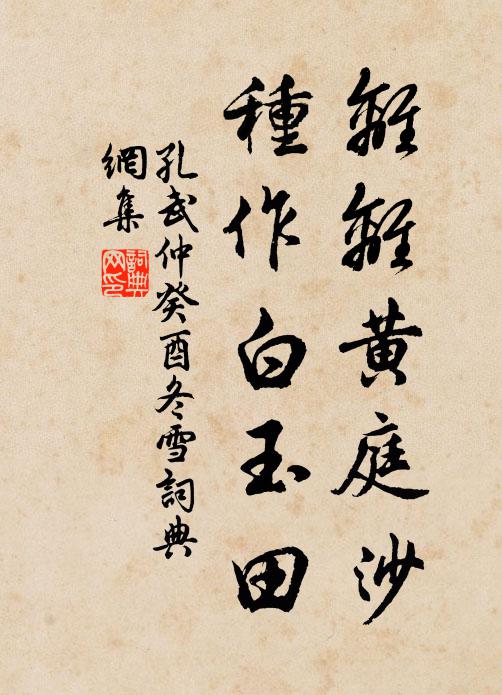 離離黃庭沙
種作白玉田
孔武仲癸酉冬雪詞典
網集
詞典
网印